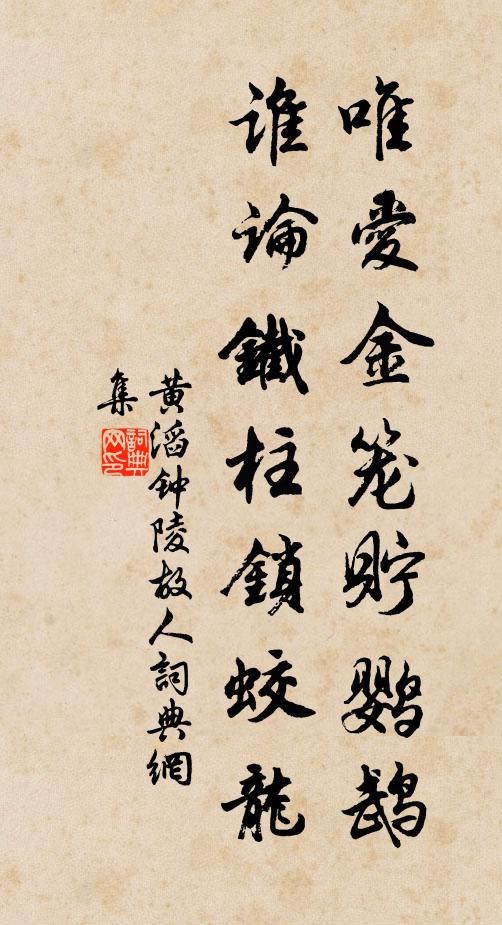 唯愛金笼貯鹦鹉
誰論鐵柱鎖蛟龍
黄滔钟陵故人詞典網
集
詞典網印